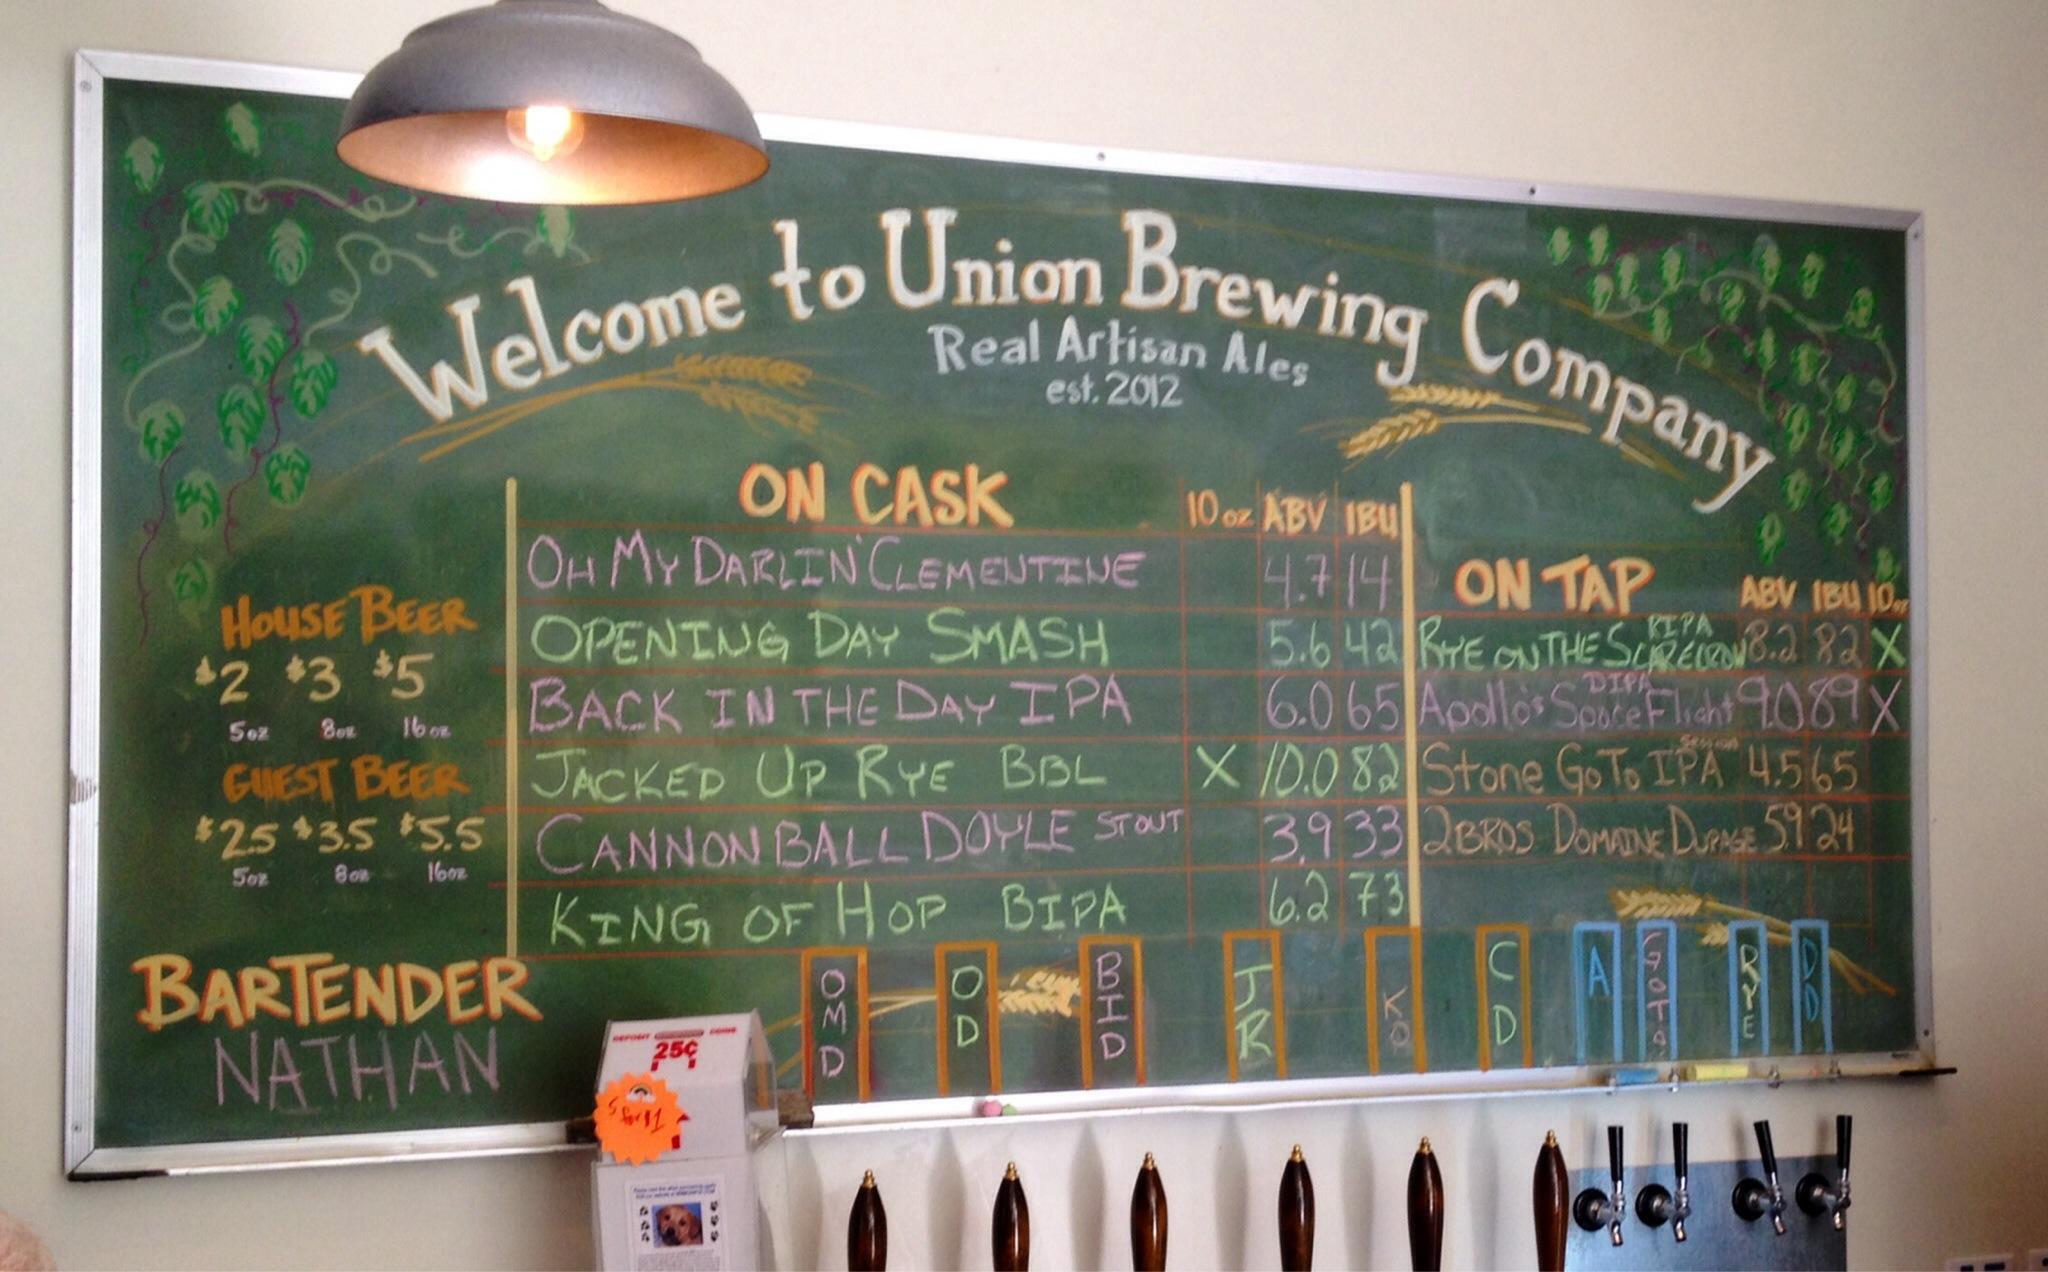 Welcome to Union Brewing Company
Real Artisan Ales
est. 2012
HOUSE BEER
$2 $3 $5
5oz 8oz 16oz
GUEST BEER
$2.5 $3.5 $5.5
5oz 8oz 16oz
BARTENDER
NATHAN
ON CASK 10oz ABV IBU
OH MY DARLIN' CLEMENTINE 4.7 14
OPENING DAY SMASH 5.6 42
BACK IN THE DAY IPA 6.0 65
JACKED UP RYE BBL X 10.0 82
CANNONBALL DOYLE STOUT 3.9 33
KING OF HOP BIPA 6.2 73
ON TAP ABV IBU 10oz
RYE ON THE SCARECROW RIPA 8.2 82 X
Apollo's Space Flight DIPA 9.0 89 X
Stone Go To Session IPA 4.5 65
2BROS DOMAINE DUPAGE 5.9 24
OMD OD BID JR KO CD A GOTO RYE DD
DEPOSIT COINS
25¢
5 for $1